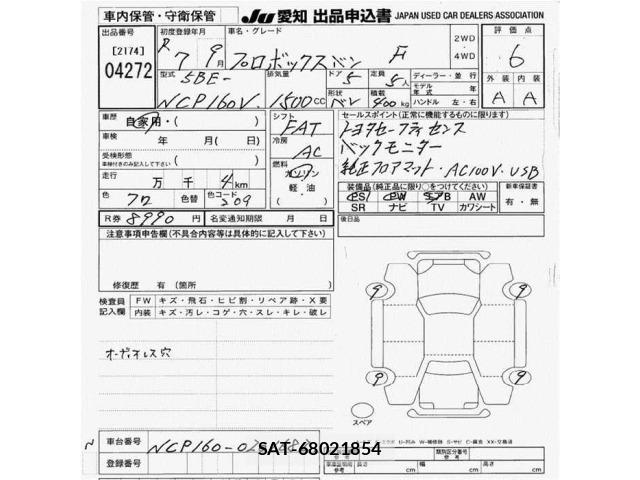 車内保管・守衛保管 JU 愛知 出品申込書 JAPAN USED CAR DEALERS ASSOCIATION
出品番号 [2174] 04272
初度登録年月 R 7年 9月
車名・グレード プロボックスバン F
2WD ・ 4WD
評価点 6
型式 5BE- NCP160V
排気量 1500cc
ドア 5
定員 5人
形状 バン
積載 400kg
ディーラー・並行
モデル 年 年式
ハンドル 左・右
外装 A 内装 A
車歴 自家用・( )
車検 年 月( 日)
受検形態 車検付きのみ記入して下さい ( )
走行 万 千 4 km
色 クロ 色替 色コード 209
R券 8990円 名変通知期限 月 日
シフト FAT
冷房 AC
燃料 ガソリン 軽・油 ( )
セールスポイント(正常に機能するものに限ります)
トヨタセーフティセンス
バックモニター
純正フロアマット・AC100V・USB
装備品(純正品に限り○をつけてください)
PS PW エアB AW
SR ナビ TV カワシート
新車保証書 有・無
後日品
注意事項申告欄(不具合内容等は具体的に記入して下さい)
修復歴 有 (箇所 )
検査員記入欄
FW キズ・飛石・ヒビ割・リペア跡・X要
内装 キズ・汚レ・コゲ・穴・スレ・キレ・破レ
オーディオレス穴
9 9
9 9
スペア
車台番号 NCP160-
SAT-68021854
登録番号
類別区分番号
長さ cm 幅 cm 高さ cm